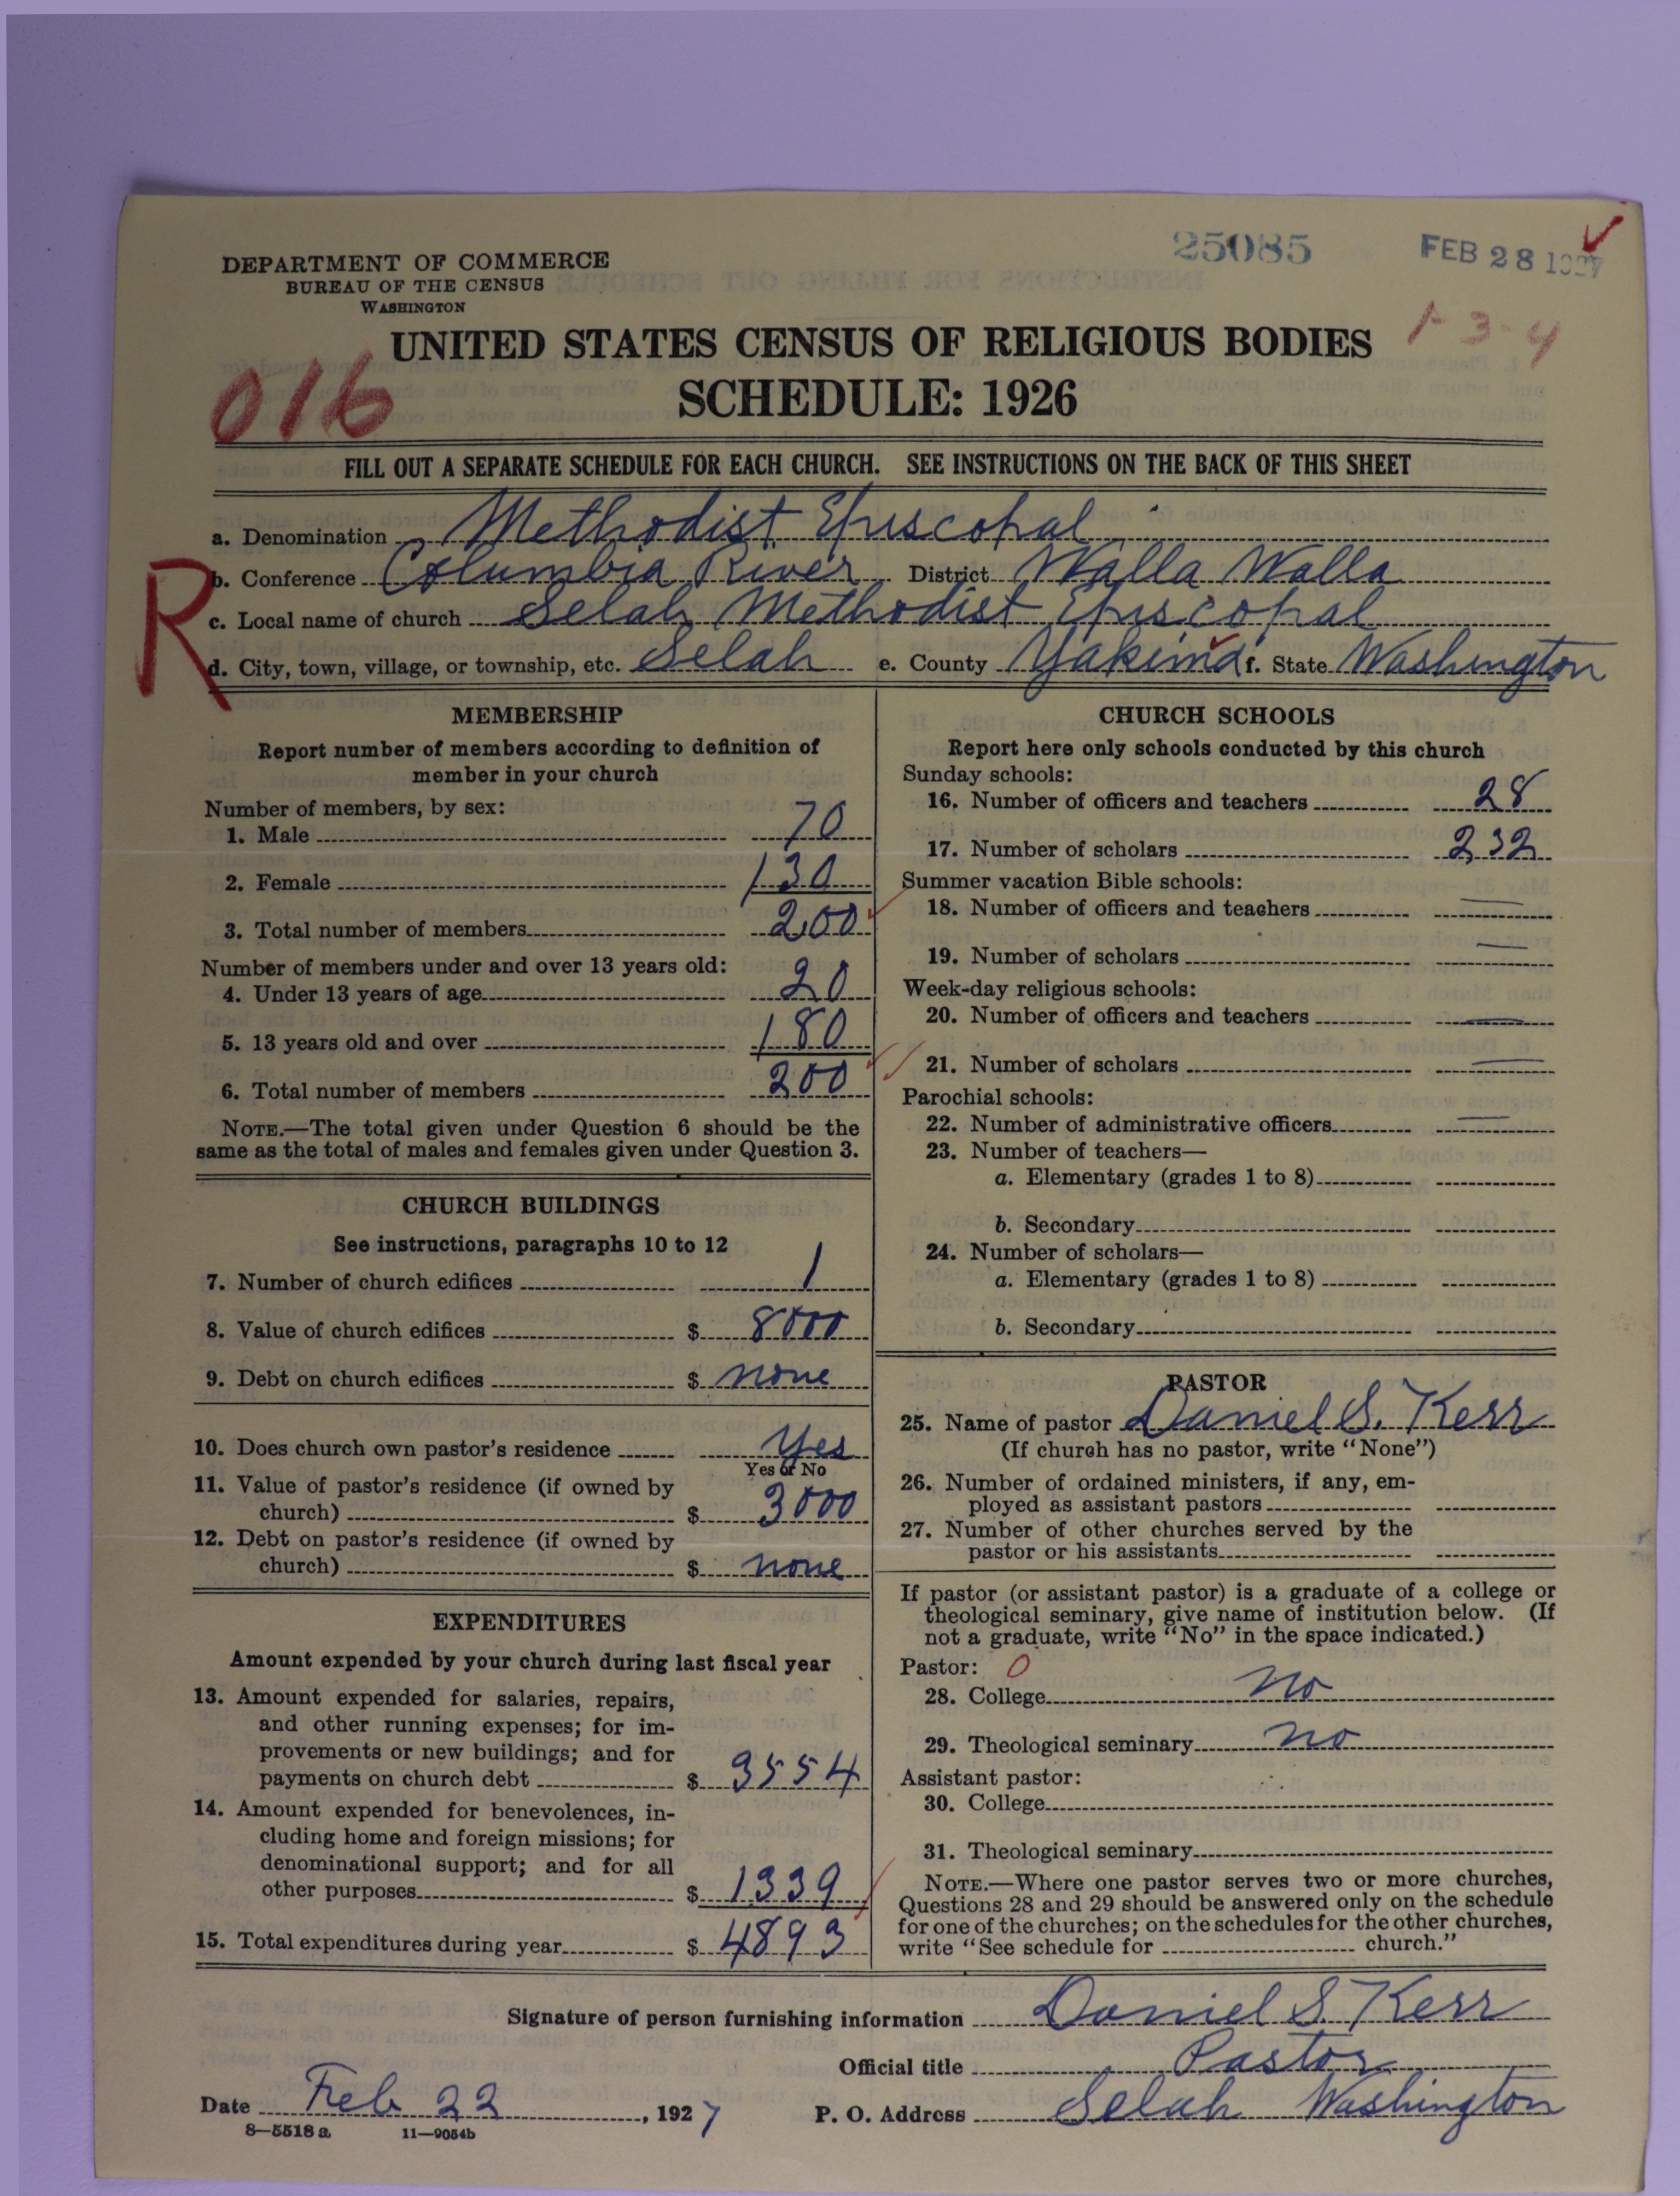 25085
FEB 28 1927
DEPARTMENT OF COMMERCE
BUREAU OF THE CENSUS
WASHINGTON
1-3-4
UNITED STATES CENSUS OF RELIGIOUS BODIES
016
SCHEDULE: 1926
FILL OUT A SEPARATE SCHEDULE FOR EACH CHURCH. SEE INSTRUCTIONS ON THE BACK OF THIS SHEET
a. Denomination Methodist Episcopal
R
b. Conference Columbia River District Walla Walla
c. Local name of church Selah Methodist Episcopal
d. City, town, village, or township, etc. Selah e. County Yakima f. State Washington
MEMBERSHIP
Report number of members according to definition of
member in your church
Number of members, by sex:
1. Male 70
2. Female 130
3. Total number of members 200
Number of members under and over 13 years old:
4. Under 13 years of age 20
5. 13 years old and over 180
6. Total number of members 200
NOTE.—The total given under Question 6 should be the
same as the total of males and females given under Question 3.
CHURCH BUILDINGS
See instructions, paragraphs 10 to 12
7. Number of church edifices 1
8. Value of church edifices $ 8000
9. Debt on church edifices $ none
10. Does church own pastor's residence Yes
Yes or No
11. Value of pastor's residence (if owned by
church) $ 3000
12. Debt on pastor's residence (if owned by
church) $ none
EXPENDITURES
Amount expended by your church during last fiscal year
13. Amount expended for salaries, repairs,
and other running expenses; for im-
provements or new buildings; and for
payments on church debt $ 3554
14. Amount expended for benevolences, in-
cluding home and foreign missions; for
denominational support; and for all
other purposes $ 1339
15. Total expenditures during year $ 4893
CHURCH SCHOOLS
Report here only schools conducted by this church
Sunday schools:
16. Number of officers and teachers 28
17. Number of scholars 232
Summer vacation Bible schools:
18. Number of officers and teachers —
19. Number of scholars —
Week-day religious schools:
20. Number of officers and teachers —
21. Number of scholars —
Parochial schools:
22. Number of administrative officers —
23. Number of teachers—
a. Elementary (grades 1 to 8)
b. Secondary
24. Number of scholars—
a. Elementary (grades 1 to 8)
b. Secondary
PASTOR
25. Name of pastor Daniel S. Kerr
(If church has no pastor, write "None")
26. Number of ordained ministers, if any, em-
ployed as assistant pastors
27. Number of other churches served by the
pastor or his assistants
If pastor (or assistant pastor) is a graduate of a college or
theological seminary, give name of institution below. (If
not a graduate, write "No" in the space indicated.)
Pastor: 0
28. College No
29. Theological seminary No
Assistant pastor:
30. College
31. Theological seminary
NOTE.—Where one pastor serves two or more churches,
Questions 28 and 29 should be answered only on the schedule
for one of the churches; on the schedules for the other churches,
write "See schedule for church."
Signature of person furnishing information Daniel S. Kerr
Official title Pastor
Date Feb 22, 1927 P. O. Address Selah Washington
8—5518 a 11—9054b